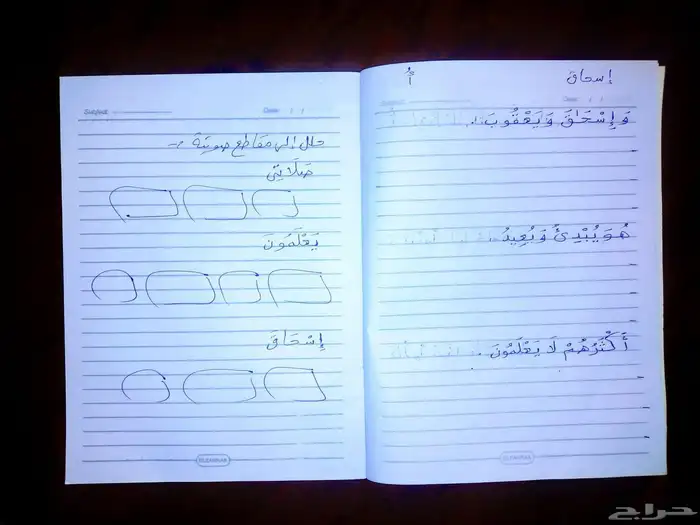 إسحاق
أُ
Subject
Date: / /
وَإِسْحَاقَ وَيَعْقُوبَ
هُوَ يُبْدِئُ وَيُعِيدُ
أَكْثَرُهُمْ لَا يَعْلَمُونَ
Subject
Date: / /
حلل إلى مقاطع صوتية :-
صَلَاتِي
يَعْلَمُونَ
إِسْحَاقَ
حراج